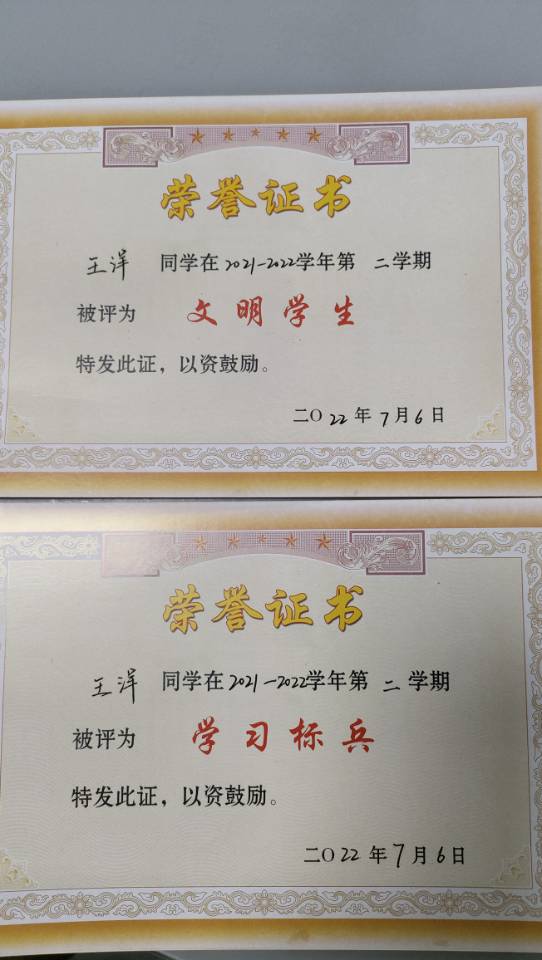 荣誉证书
王洋 同学在2021-2022学年第 二学期
被评为 文明学生
特发此证，以资鼓励。
二〇22年7月6日
荣誉证书
王洋 同学在2021-2022学年第 二学期
被评为 学习标兵
特发此证，以资鼓励。
二〇22年7月6日